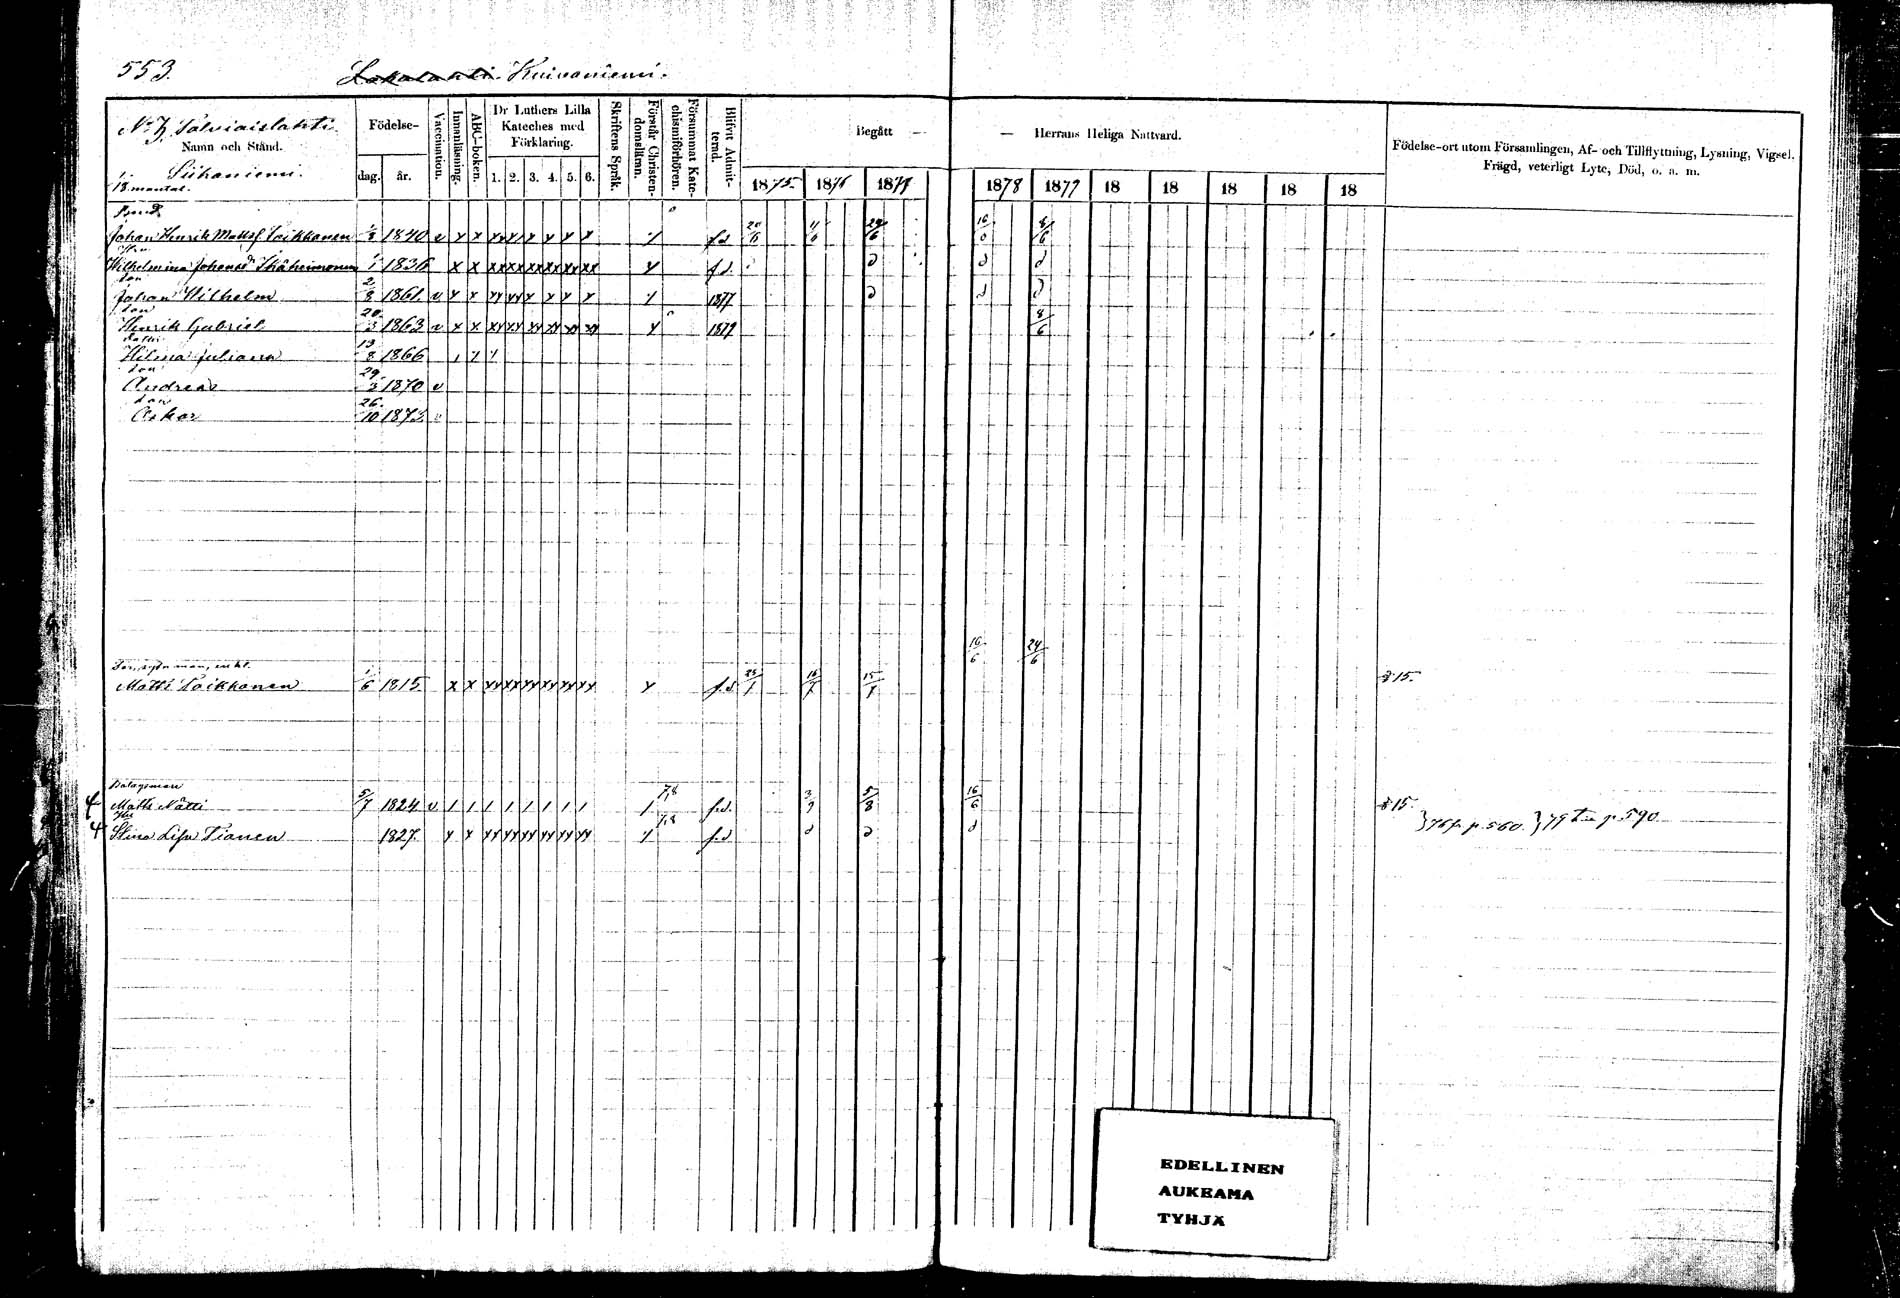 553. Lokalahti. Kuivaniemi.
No 7. Salviaislahti.
Namn och Stånd.
Siikaniemi.
1/18. mantal.
Födelse-
dag. år.
Vaccination.
Innanläsning.
ABC-boken.
Dr Luthers Lilla
Kateches med
Förklaring.
1. 2. 3. 4. 5. 6.
Skriftens Språk.
Förstår Christen-
domsläran.
Försummat Kate-
chismiförhören.
Blifvit Admit-
terad.
Begått — — Herrans Heliga Nattvard.
1875. 1876 1877 1878 1879 18 18 18 18 18
Födelse-ort utom Församlingen, Af- och Tillflyttning, Lysning, Vigsel,
Frägd, veterligt Lyte, Död, o. a. m.
Johan Henrik Matts. Toikkanen 1840 v x x f.d.
Wilhelmina Johansd. 1836 x x f.d.
son
Johan Wilhelm 2/8 1861. v x x 1877
son
Henrik Gabriel 20/3 1863 v x x 1879 8/6
Hilma Juliana 13/8 1866
son
Andreas 29/3 1870 v
son
Oskar 26/10 1873. v
16/6 24/6
Matti Toikkanen 1/6 1815 x x f.d. § 15.
Bolagsman
4 Matts Nätti 5/7 1824 v 7,8 f.d. 5/8 16/6 § 15.
4 Stina Lisa Pianen 1827. x x 7,8 f.d. } 76 fr. p. 560. } 79 p. 590
EDELLINEN
AUKEAMA
TYHJÄ